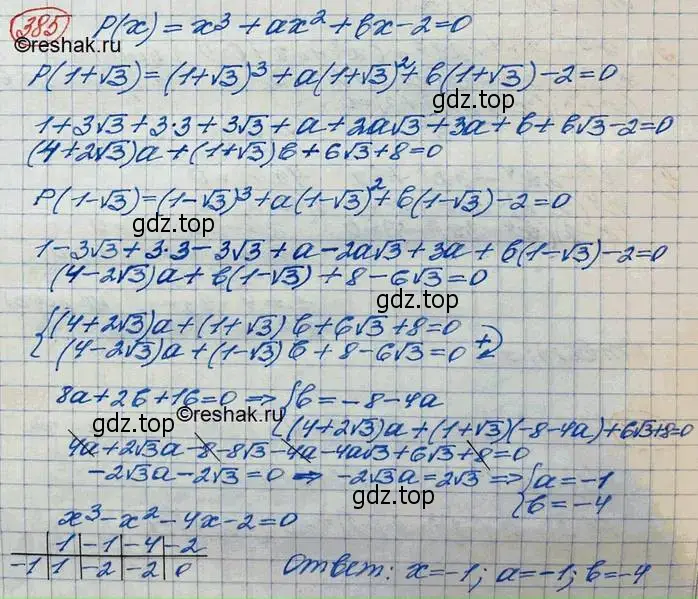 385 P(x) = x³ + ax² + bx - 2 = 0
©reshak.ru
P(1+√3) = (1+√3)³ + a(1+√3)² + b(1+√3) - 2 = 0
gdz.top
1 + 3√3 + 3·3 + 3√3 + a + 2a√3 + 3a + b + b√3 - 2 = 0
(4+2√3)a + (1+√3)b + 6√3 + 8 = 0
P(1-√3) = (1-√3)³ + a(1-√3)² + b(1-√3) - 2 = 0
gdz.top
1 - 3√3 + 3·3 - 3√3 + a - 2a√3 + 3a + b(1-√3) - 2 = 0
(4-2√3)a + b(1-√3) + 8 - 6√3 = 0
gdz.top
{(4+2√3)a + (1+√3)b + 6√3 + 8 = 0
(4-2√3)a + (1-√3)b + 8 - 6√3 = 0 +
8a + 2b + 16 = 0 ⇒ {b = -8 - 4a
©reshak.ru
gdz.top
(4+2√3)a + (1+√3)(-8-4a) + 6√3 + 8 = 0
4a + 2√3a - 8 - 8√3 - 4a - 4a√3 + 6√3 + 8 = 0
-2√3a - 2√3 = 0 ⇒ -2√3a = 2√3 ⇒ {a = -1
b = -4
gdz.top
x³ - x² - 4x - 2 = 0
1 -1 -4 -2
-1 1 -2 -2 0
Ответ: x = -1; a = -1; b = -4